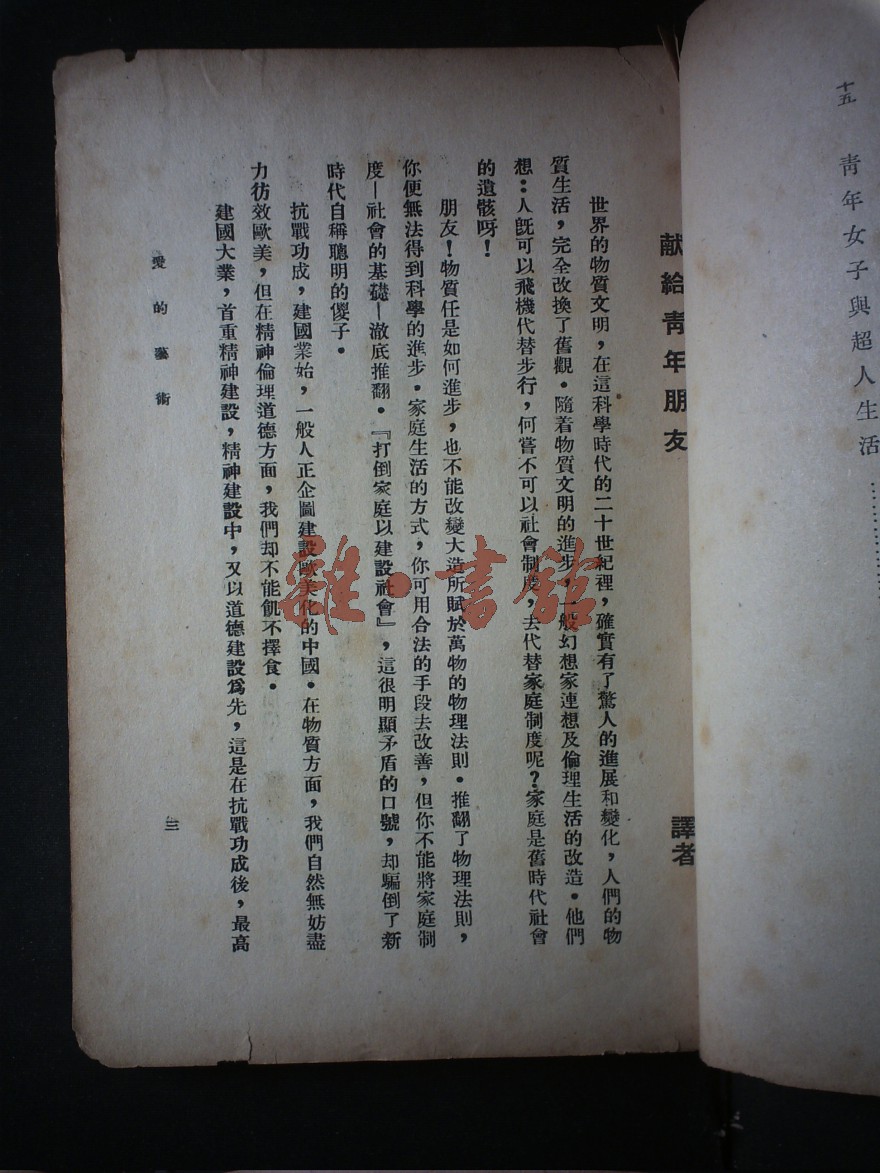 十五 青年女子與超人生活……………
献給青年朋友 譯者
世界的物質文明，在這科學時代的二十世紀裡，確實有了驚人的進展和變化，人們的物
質生活，完全改換了舊觀．隨着物質文明的進步，一般幻想家連想及倫理生活的改造．他們
想：人旣可以飛機代替步行，何嘗不可以社會制度，去代替家庭制度呢？家庭是舊時代社會
的遺骸呀！
朋友！物質任是如何進步，也不能改變大造所賦於萬物的物理法則．推翻了物理法則，
你便無法得到科學的進步．家庭生活的方式，你可用合法的手段去改善，但你不能將家庭制
度—社會的基礎—澈底推翻．『打倒家庭以建設社會』，這很明顯矛盾的口號，却騙倒了新
時代自稱聰明的傻子．
抗戰功成，建國業始，一般人正企圖建設歐美化的中國．在物質方面，我們自然無妨盡
力彷效歐美，但在精神倫理道德方面，我們却不能飢不擇食．
建國大業，首重精神建設，精神建設中，又以道德建設爲先，這是在抗戰功成後，最高
愛的藝術
三
雜·書館